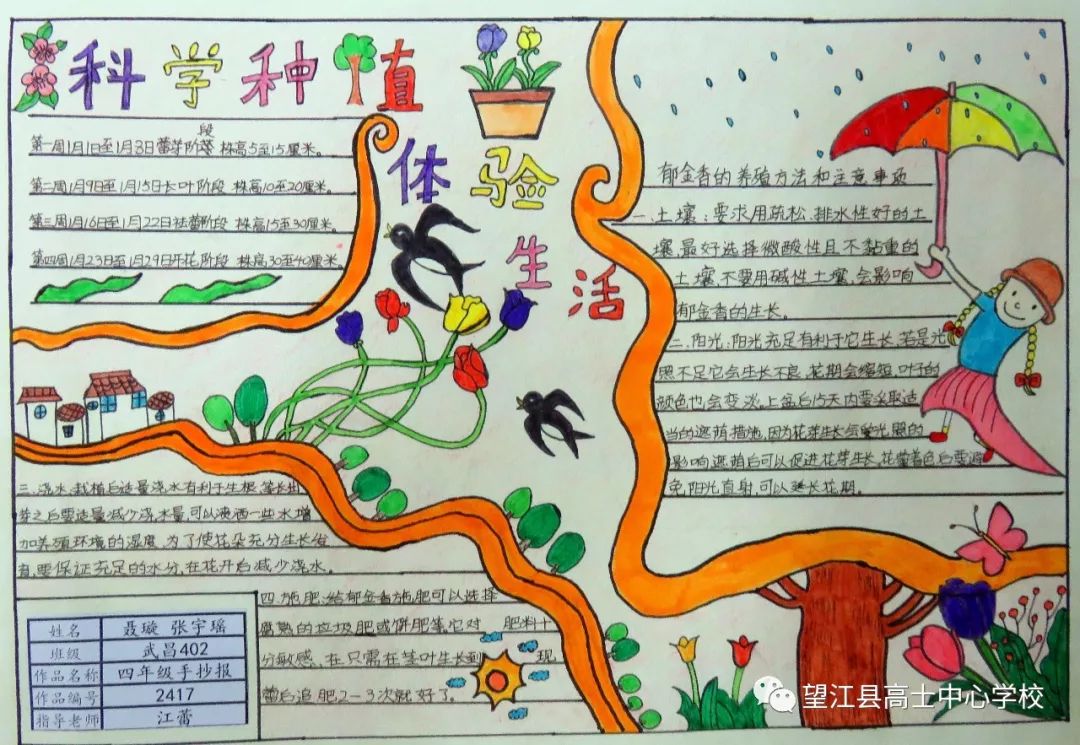 科学种植
体验
生活
段
第一周1月1日至1月8日蕾芽阶段 株高5至15厘米。
第二周1月9日至1月15日长叶阶段 株高10至20厘米。
第三周1月16日至1月22日祛蕾阶段 株高15至30厘米。
第四周1月23日至1月29日开花阶段 株高30至40厘米。
郁金香的养殖方法和注意事项
一、土壤:要求用疏松、排水性好的土
壤,最好选择微酸性且不黏重的
土壤,不要用碱性土壤,会影响
郁金香的生长。
二、阳光:阳光充足有利于它生长,若是光
照不足它会生长不良,花期会缩短,叶子的
颜色也会变淡。上盆后15天内要采取适
当的遮荫措施,因为花芽生长会受光照的
影响遮荫后可以促进花芽生长。花蕾着色后要避
免阳光直射,可以延长花期。
三、浇水:栽植后适量浇水有利于生根,等长出
芽之后要适量减少浇水量,可以喷洒一些水增
加养殖环境的湿度,为了使花朵充分生长发
育,要保证充足的水分,在花开后减少浇水。
四、施肥:给郁金香施肥可以选择
腐熟的垃圾肥或饼肥等。它对 肥料十
分敏感、在只需在茎叶生长到 现
蕾后追肥2-3次就好了。
姓名 聂璇 张宇瑶
班级 武昌402
作品名称 四年级手抄报
作品编号 2417
指导老师 江蕾
望江县高士中心学校